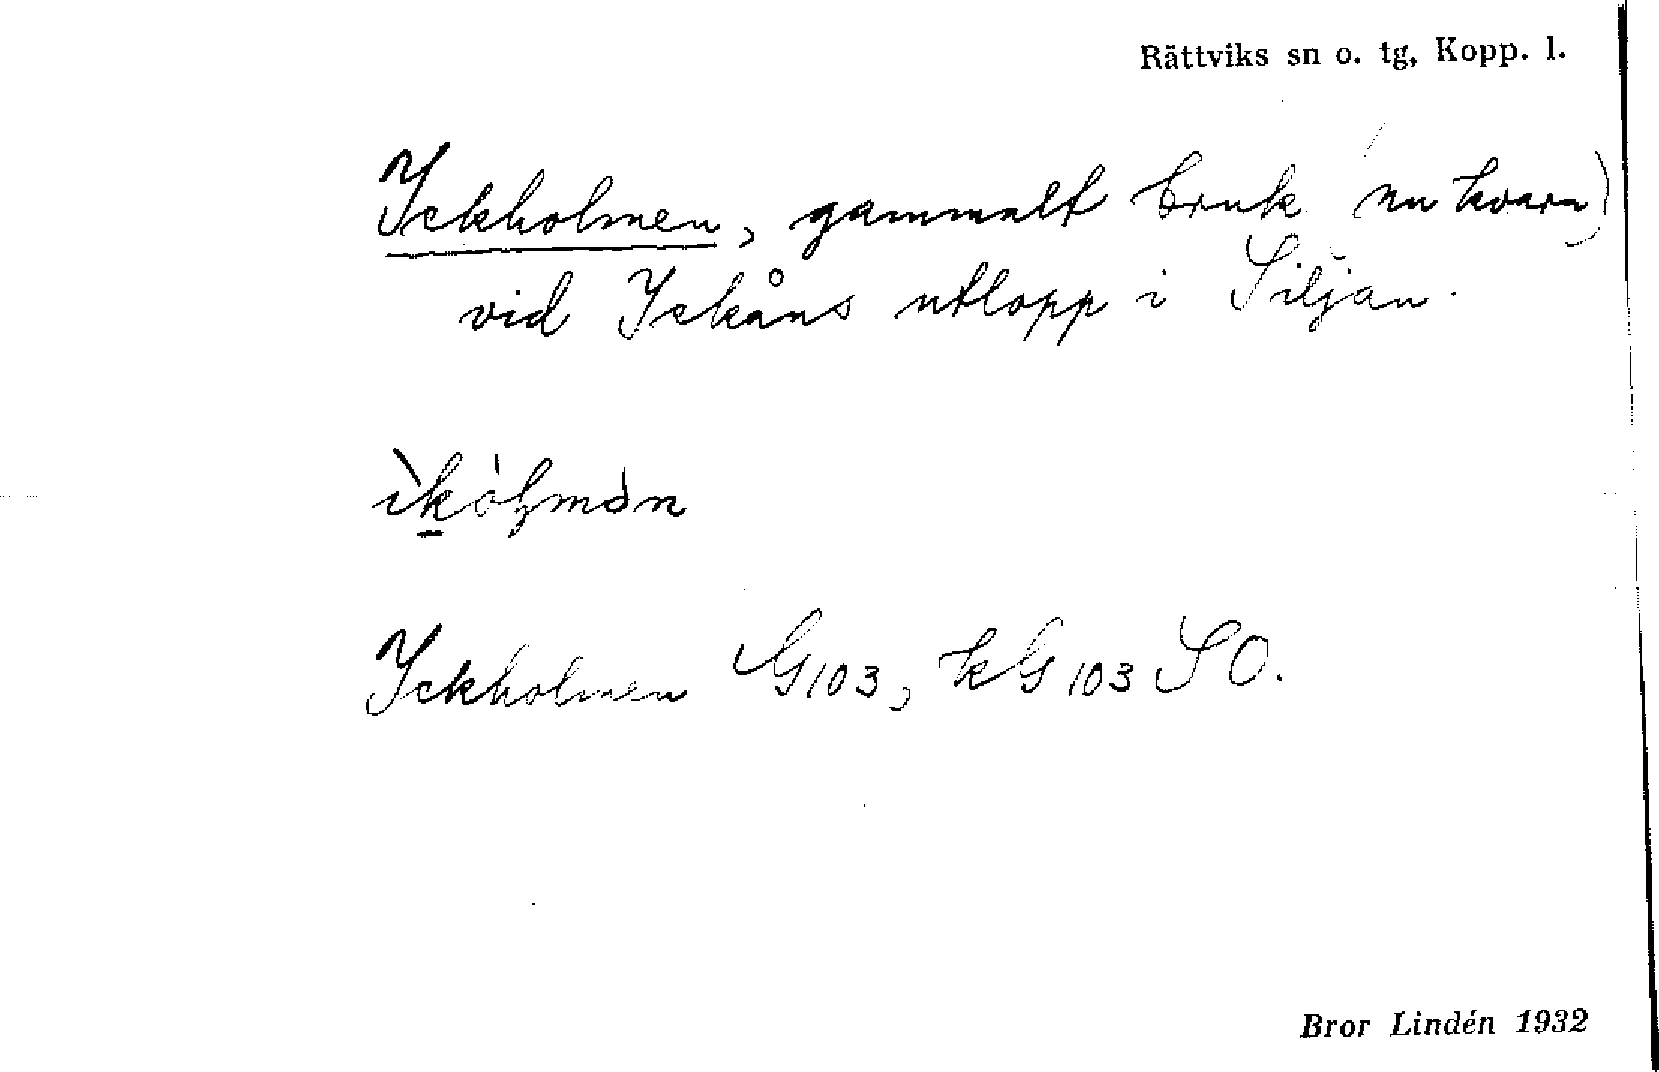 Rättviks sn o. tg, Kopp. l.
Ickholmen, gammalt bruk (nu kvarn)
vid Ickåns utlopp i Siljan.
Ickholmen G103, kG103 SO.
Bror Lindén 1932